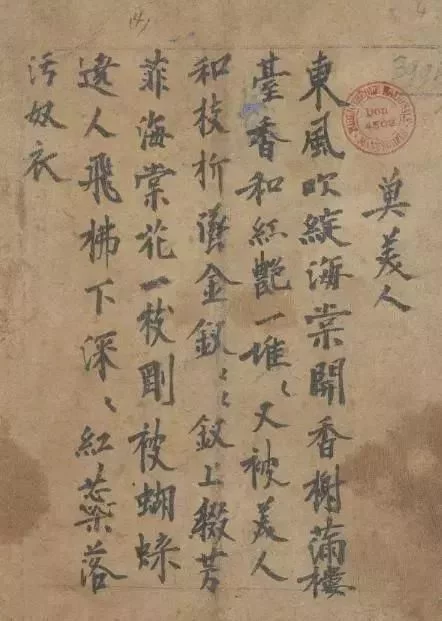 奠美人
東風吹綻海棠開香榭滿樓
臺香和紅艷一堆〻又被美人
和枝折墜金釵〻釵上綴芳
菲海棠花一枝剛被蝴蝶
遶人飛拂下深〻紅蕊落
污奴衣
DON
4502